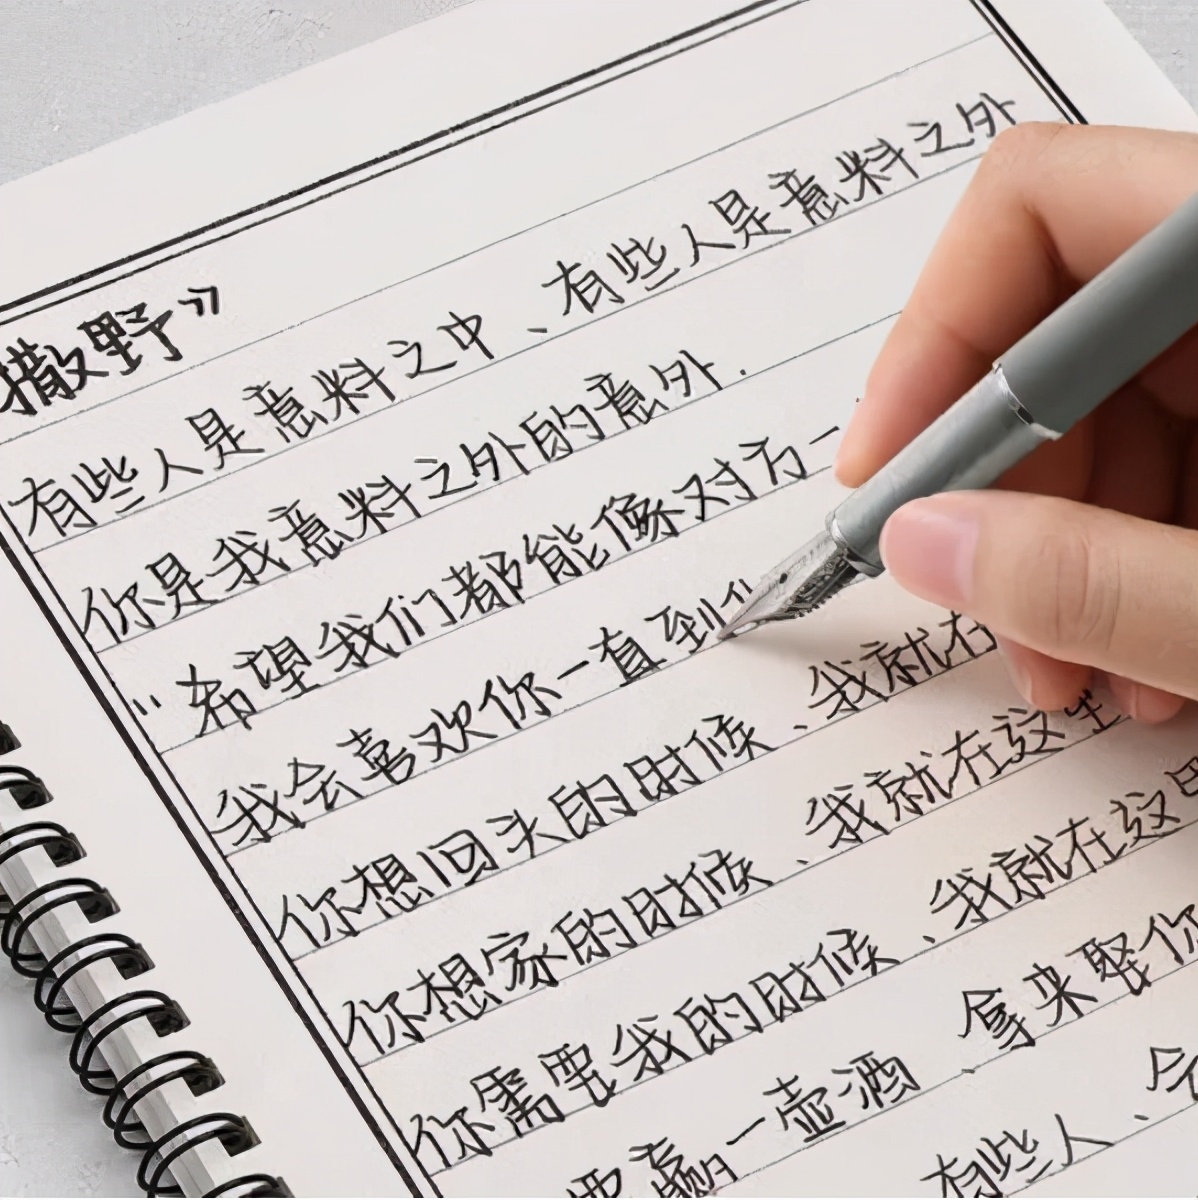 撒野》
有些人是意料之中、有些人是意料之外
你是我意料之外的意外.
“希望我们都能像对方一
我会喜欢你一直到
你想回头的时候、我就在
你想家的时候、我就在这里
你需要我的时候、我就在这里
要赢一壶酒 拿来娶你
有些人、会